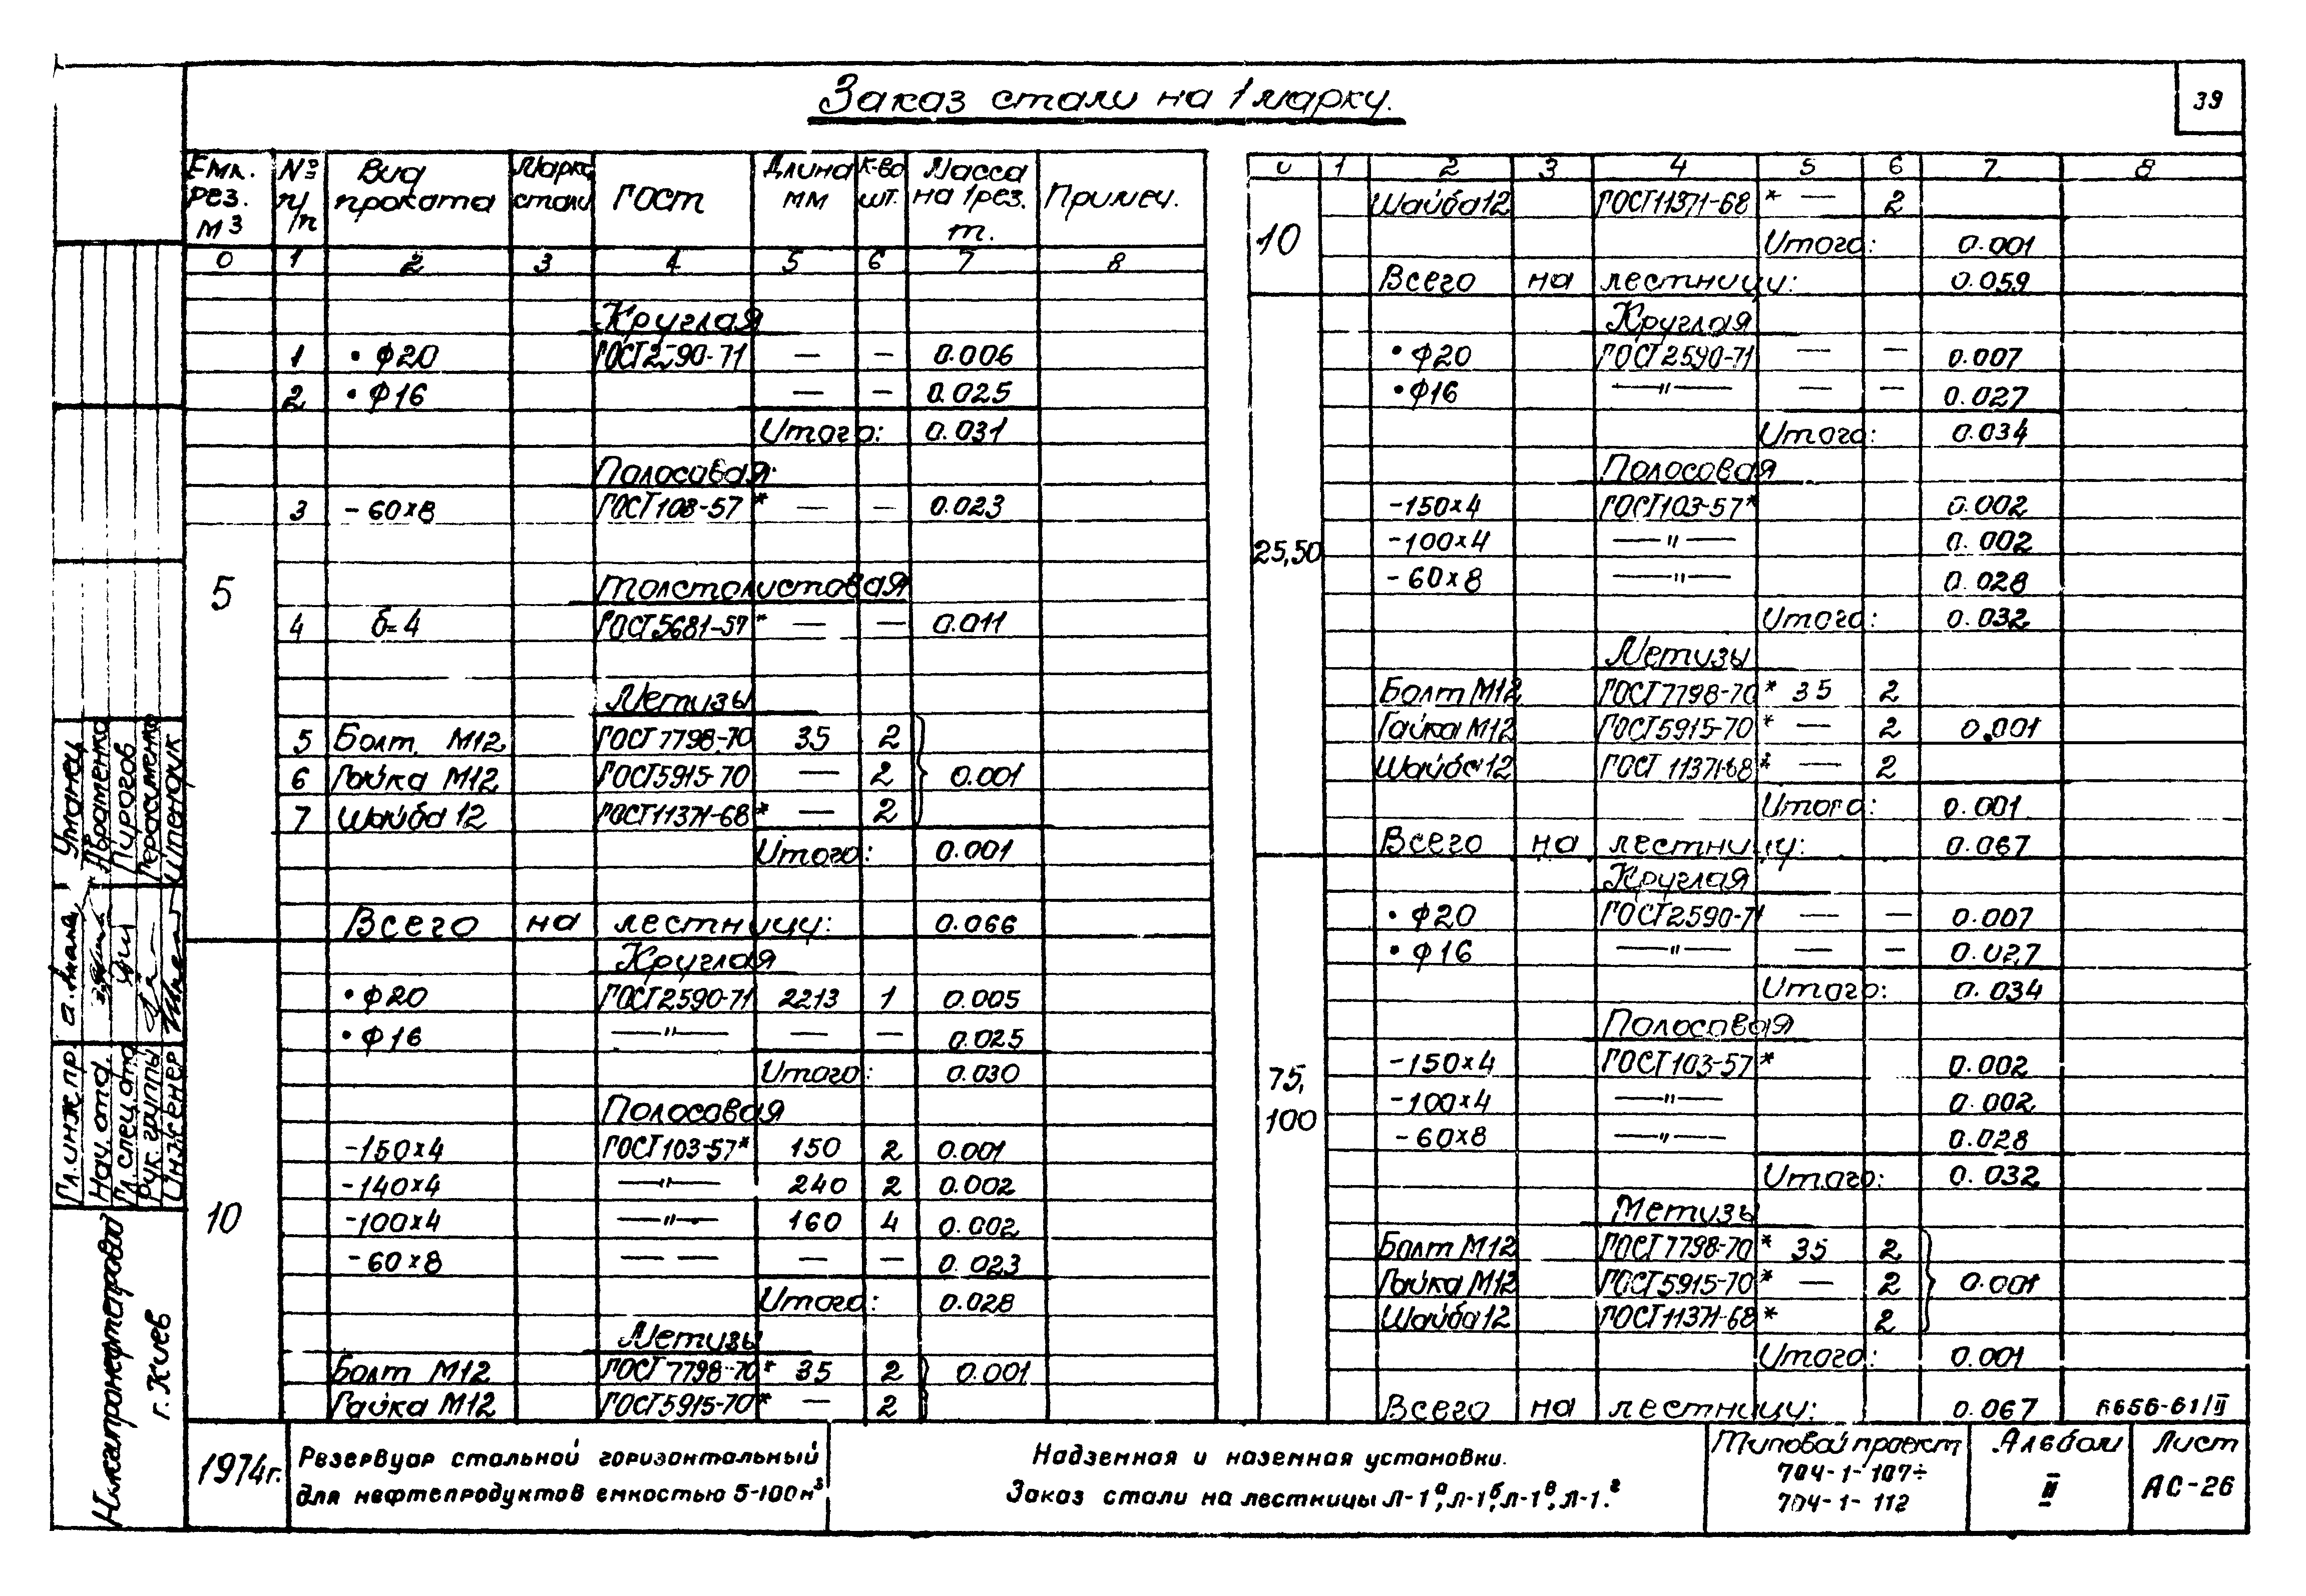 Заказ стали на 1 марку.
39
Емк. рез. м3 | №№ п/п | Вид проката | Марка стали | ГОСТ | Длина мм | К-во шт. | Масса на 1 рез. т. | Примеч.
0 1 2 3 4 5 6 7 8
5
Круглая
1 • ф20 ГОСТ2590-71 — — 0.006
2 • ф16 — — 0.025
Итого: 0.031
Полосовая
3 -60х8 ГОСТ103-57* — — 0.023
Толстолистовая
4 б=4 ГОСТ5681-57* — — 0.011
Метизы
5 Болт М12 ГОСТ7798-70 35 2
6 Гайка М12 ГОСТ5915-70 — 2 0.001
7 Шайба 12 ГОСТ11371-68* — 2
Итого: 0.001
Всего на лестницу: 0.066
10
Круглая
• ф20 ГОСТ2590-71 2213 1 0.005
• ф16 —"— — — 0.025
Итого: 0.030
Полосовая
-150х4 ГОСТ103-57* 150 2 0.001
-140х4 —"— 240 2 0.002
-100х4 —"— 160 4 0.002
-60х8 — — — — 0.023
Итого: 0.028
Метизы
Болт М12 ГОСТ7798-70* 35 2 0.001
Гайка М12 ГОСТ5915-70* — 2
0 1 2 3 4 5 6 7 8
10
Шайба 12 ГОСТ11371-68* — 2
Итого: 0.001
Всего на лестницу: 0.059
25,50
Круглая
• ф20 ГОСТ2590-71 — — 0.007
• ф16 —"— — — 0.027
Итого: 0.034
Полосовая
-150х4 ГОСТ103-57* 0.002
-100х4 —"— 0.002
-60х8 —"— 0.028
Итого: 0.032
Метизы
Болт М12 ГОСТ7798-70* 35 2
Гайка М12 ГОСТ5915-70* — 2 0.001
Шайба 12 ГОСТ 11371-68* — 2
Итого: 0.001
Всего на лестницу: 0.067
75,
100
Круглая
• ф20 ГОСТ2590-71 — — 0.007
• ф16 —"— — — 0.027
Итого: 0.034
Полосовая
-150х4 ГОСТ103-57* 0.002
-100х4 —"— 0.002
-60х8 —"— 0.028
Итого: 0.032
Метизы
Болт М12 ГОСТ7798-70* 35 2
Гайка М12 ГОСТ5915-70* — 2 0.001
Шайба 12 ГОСТ11371-68* 2
Итого: 0.001
Всего на лестницу: 0.067
656-61/II
Гл. инж. пр. Уманец
Нач. отд. Абраменко
Гл. спец. отд. Пирогов
Рук. группы Герасименко
Инженер
г. Киев
1974г.
Резервуар стальной горизонтальный
для нефтепродуктов емкостью 5-100м³
Надземная и наземная установки.
Заказ стали на лестницы Л-1а, Л-1б, Л-1в, Л-1г.
Типовой проект
704-1-107÷
704-1-112
Альбом
II
Лист
АС-26